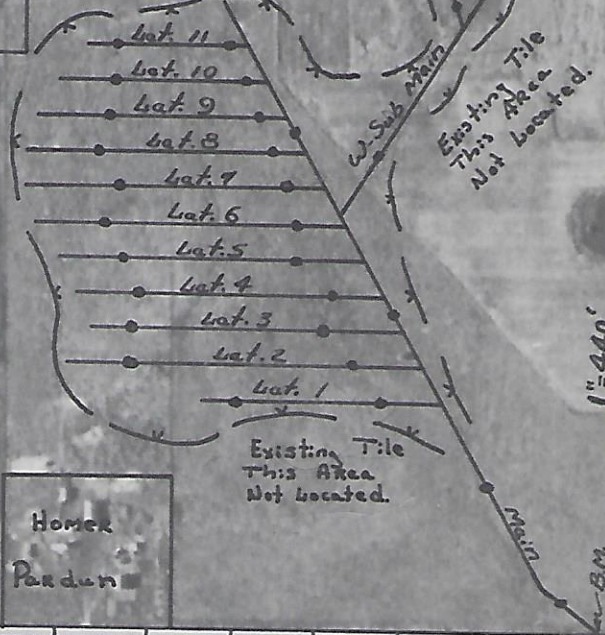 Lat. 11
Lat. 10
Lat. 9
Lat. 8
Lat. 7
Lat. 6
Lat. 5
Lat. 4
Lat. 3
Lat. 2
Lat. 1
W-Sub Main
Existing Tile
This Area
Not Located.
1"=440'
Existing Tile
This Area
Not Located.
Main
B.M.
Homer
Pardun